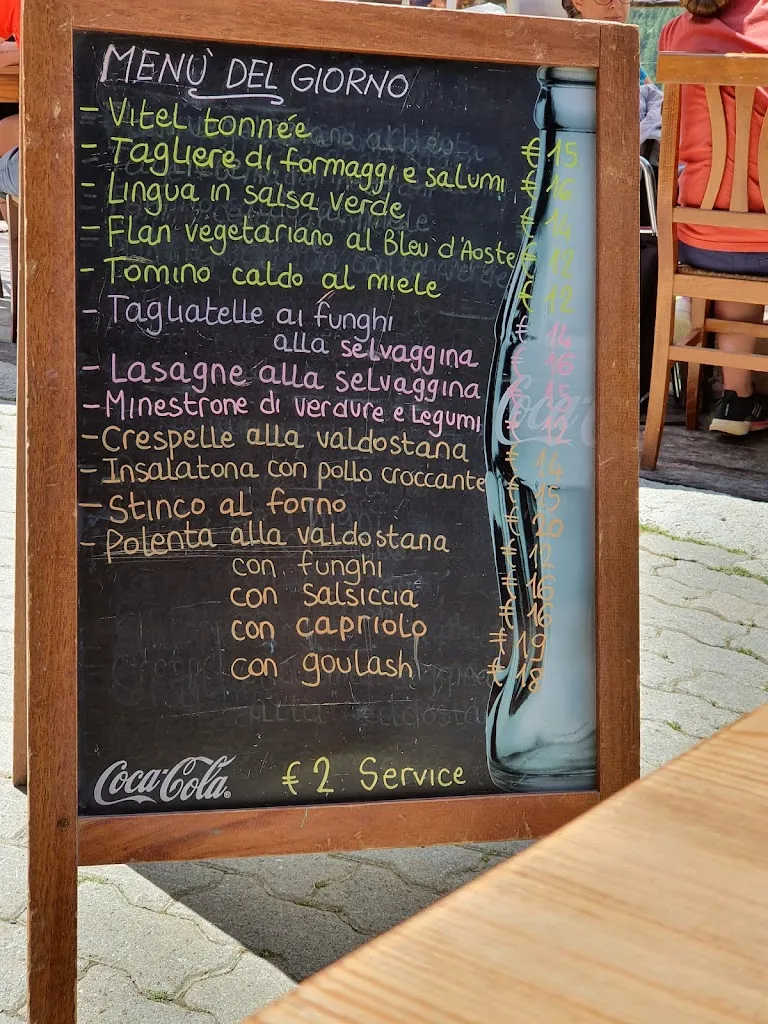 MENÙ DEL GIORNO
- Vitel tonnée € 15
- Tagliere di formaggi e salumi € 16
- Lingua in salsa verde € 14
- Flan vegetariano al Bleu d'Aoste € 12
- Tomino caldo al miele € 12
- Tagliatelle ai funghi € 14
alla selvaggina € 16
- Lasagne alla selvaggina € 15
- Minestrone di verdure e legumi € 12
- Crespelle alla valdostana € 14
- Insalatona con pollo croccante € 15
- Stinco al forno € 20
- Polenta alla valdostana € 12
con funghi € 16
con salsiccia € 16
con capriolo € 19
con goulash € 18
Coca-Cola® € 2 Service
Coca-Cola